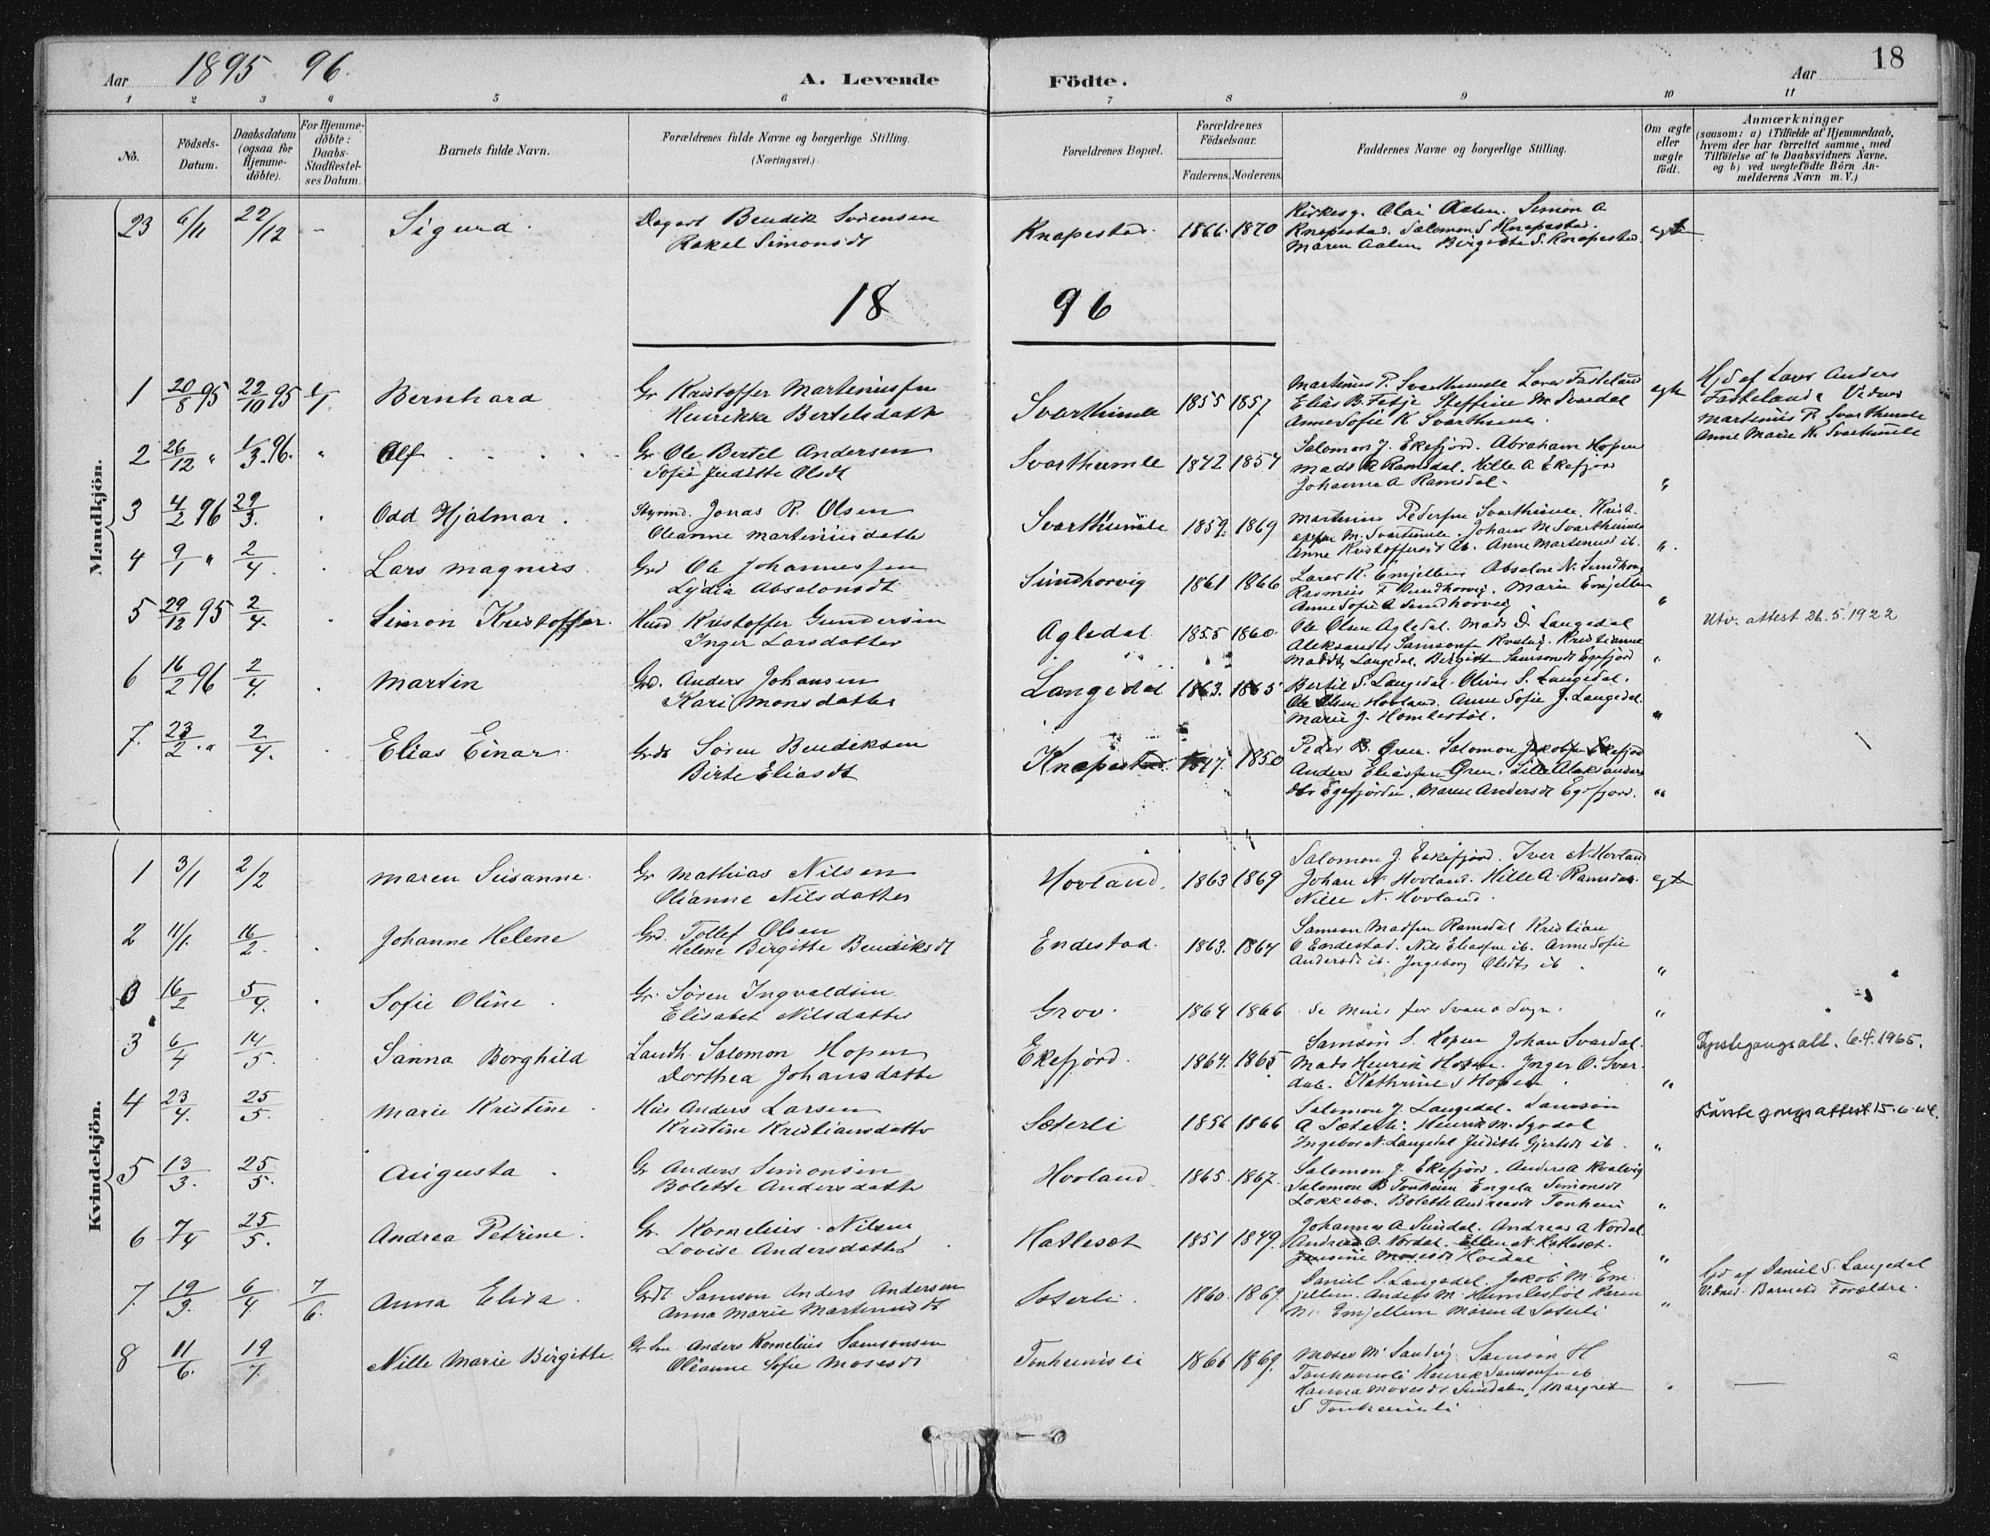 Aar 1895 96.
A. Levende Födte.
Aar
18
1 2 3 4 5 6 7 8 9 10 11
No.
Födsels-Datum.
Daabsdatum (ogsaa for Hjemme-döbte).
For Hjemme-döbte: Daabs-Stadfæstel-ses Datum.
Barnets fulde Navn.
Forældrenes fulde Navne og borgerlige Stilling. (Næringsvei.)
Forældrenes Bopæl.
Forældrenes Födselsaar.
Faderens. Moderens.
Faddernes Navne og borgerlige Stilling.
Om ægte eller uægte födt.
Anmærkninger
(saasom: a) i Tilfælde af Hjemmedaab, hvem der har forrettet samme, med Tilföielse af to Daabsvidners Navne, og b) ved uægtefödte Börn Anmelderens Navn m. V.)
Mandkjön.
23 6/11 22/12 - Sigurd. Bendik Sörensen
Rakel Simonsdt
Knapestad. 1866. 1870
Kirkesg. Olai Aalen. Simon A
Knapestad. Salomon S Knapestad.
Maren Aalen Birgitte S. Knapestad.
egte
18 96
1 20/8 95 22/10 95 Bernhard Gr Kristoffer Martinussen
Henrikke Bertelsdatt
Svarthumle 1855 1857
Martinus P. Svarthumle Lars Fasteland
Elias B. Steffine M Svardal
Anne Sofie K Svarthumle.
egte
Hjd af Lars Anders
Fasteland. Vidner
Martinus P. Svarthumle
Anne Marie K. Svarthumle
2 26/12 " 1/3 96. " Olf Gr Ole Bertel Andersen
Sofie Juditte Olsdt
Svarthumle 1842 1854
Salomon J. Ekefjord. Abraham Hopen
Mads A Ramsdal. Hille A Ekefjord
Johanne A Ramsdal.
"
3 4/2 96 29/3. Odd Hjalmar. Styrmd. Jonas R. Olsen
Oleanne Martinusdatter
Svarthumle 1859. 1869
Martinus Pedersen Svarthumle. Krist-
offer M. Svarthumle. Johan M Svarthumle
Anne Kristoffersdt ib. Anne Martinusd ib.
"
4 9/1 " 2/4. Lars Magnus Grd Ole Johannessen
Lydia Absalonsdt
Sundhorvig 1861 1866
Lars K. Emjellen Absalon N. Sundhorvig
Rasmus F Sundhorvig. Marie Emjellen
Anne Sofie A Sundhorvig
"
5 29/12 95 2/4. Simon Kristoffer. Husd Kristoffer Gundersen
Inger Larsdatter
Agledal 1855 1860.
Ole Olsen Agledal. Mads D. Langedal
Aleksander Samsonsen Kvalvig. Kristianne
Madsdt. Langedal. Birgitte Samsonsdt Egefjord
"
Utv. attest 26.5.1922
6 16/2 96 2/4. Martin Grd. Anders Johansen
Kari Monsdatter
Langedal 1863. 1865
Bertil S. Langedal. Oliver S. Langedal.
Ole Olsen Hovland. Anne Sofie J. Langedal
Marie J. Homlestöl.
"
7. 23/2 " 2/4. Elias Einar Grdb Sören Bendiksen
Birte Eliasdt
Knapestad 1847. 1850
Peder B. Gren. Salomon Jakobsen Ekefjord
Anders Eliassen Gren. Aleksanders
dtr Egefjorden. Maren Andersdt Egefjord.
"
Kvindekjön.
1 3/1 2/2 Maren Susanne. Gr Mathias Nilsen
Olianne Nilsdatter
Hovland. 1863 1869
Salomon J. Eikefjord. Iver N. Hovland
Johan N. Hovland. Hille A. Ramsdal.
Nille N. Hovland.
egte
2 11/1. 16/2. Johanne Helene Grd. Tollef Olsen
Helene Birgitte Bendiksdt
Endestad. 1863. 1864
Samson Madsen Ramsdal Kristian
O Endestad. Nils Eliassen ib. Anne Sofie
Andersdt ib. Ingeborg Olsdt ib.
"
16/2 5/4. Sofie Oline. Gr. Sören Ingvaldsen
Elisabet Nilsdatter
Grov. 1864 1866
se Minis for Svanø Sogn.
"
3 6/4 14/5. Sanna Borghild Landh. Salomon Hopen
Dorthea Johansdatte
Ekefjörd. 1864. 1865
Samson S. Hopen Johan Svardal.
Mads Henrik Hopen. Inger O. Svar-
dal. Kathrine S Hopen.
"
6.4.1965.
4 23/4. 25/5. Marie Kristine. Hus Anders Larsen
Kristine Kristiansdatter
Sæterli 1856 1866
Salomon J. Langedal. Samson
A Sæterli. Henrik M.
Ingebor N. Langedal Judith Gjertsdt ib.
"
Förstegangsattest 15.6.
5 13/3. 25/5. Augusta. Gr Anders Simonsen
Bolette Andersdatte
Hovland. 1865. 1867.
Salomon J. Ekefjörd. Anders A Kvalvig
Salomon B Tonheim Engela Simonsdt
Løkkebø. Bolette Andreasdt Tonheim
"
6 7/4 25/5. Andrea Petrine. Gr. Kornelius. Nilsen
Lovise Andersdatter
Hatleset 1851 1849.
Johannes A Sundal. Andreas A Nordal
Andreas O. Nordal. Ellen N. Hatleset.
Mosesdt
"
7. 19/3. 6/4 7/6. Anna Elisa. Grdb Samson Anders Andersen
Anna Marie Martinusdt
Sæterli. 1860. 1869.
Daniel S. Langedal. Jakob M. Em-
jellem. Anders M. Humlestöl Karen
M. Emjellem Maren A Sæterli
"
Hjd af Daniel S. Langedal
Vidner Barnets Forældre.
8 11/6. 19/7. Nille Marie Birgitte. Anders Kornelius Samsonsen
Oleanne Sofie Mosesdt
Tonheimsli 1866 1869.
Moses M Sandvig Samson H
Tonheimsli Henrik Samsonsen ib
Hanna Mosesdt Sundalen, Margrete
S Tonheimsli